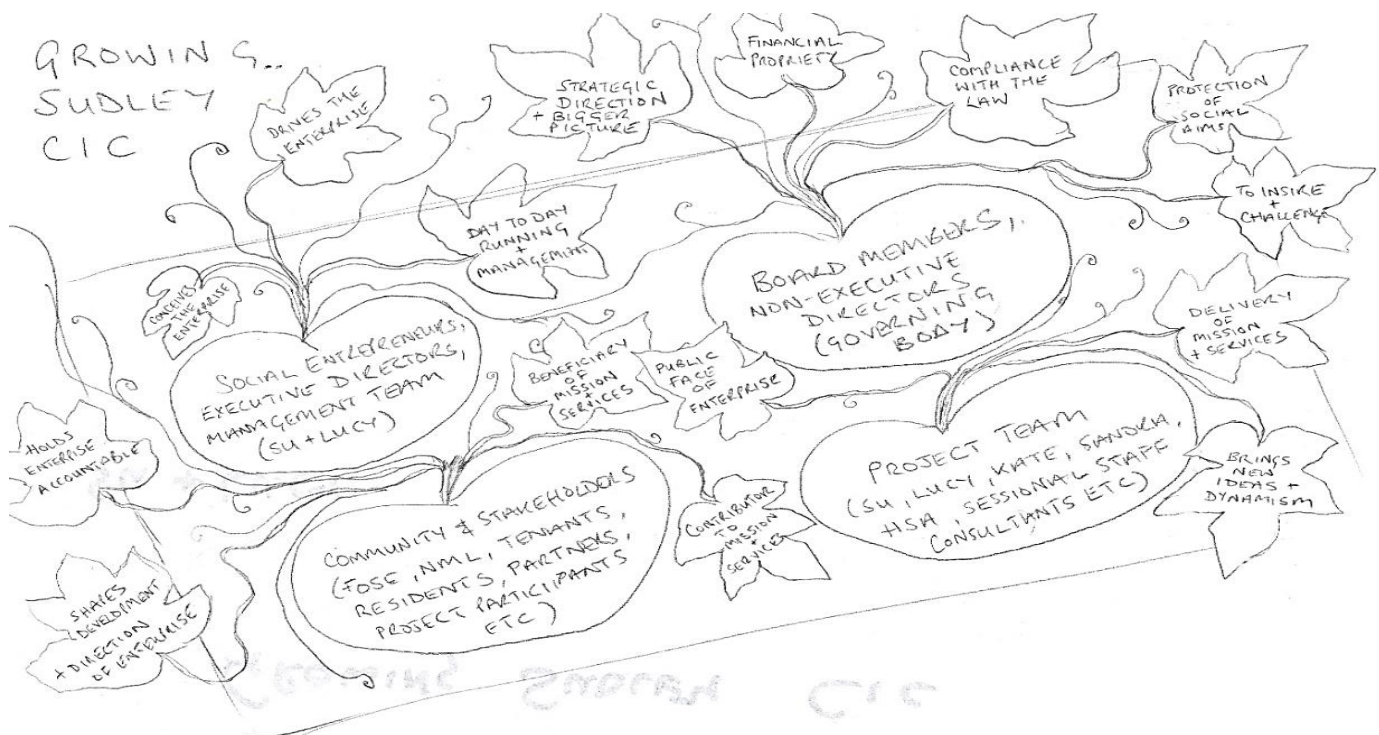 GROWING..
SUDLEY
CIC
DRIVES THE
ENTERPRISE
STRATEGIC
DIRECTION
+ BIGGER
PICTURE
FINANCIAL
PROPRIETY
COMPLIANCE
WITH THE
LAW
PROTECTION
OF
SOCIAL
AIMS
TO INSIRE
+
CHALLENGE
DAY TO DAY
RUNNING
+
MANAGEMENT
CONCEIVES
THE
ENTERPRISE
SOCIAL ENTREPRENEURS,
EXECUTIVE DIRECTORS,
MANAGEMENT TEAM
(SU + LUCY)
BOARD MEMBERS,
NON-EXECUTIVE
DIRECTORS
(GOVERNING
BODY)
BENEFICIARY
OF
MISSION
+
SERVICES
PUBLIC
FACE
OF
ENTERPRISE
DELIVERY
OF
MISSION
+ SERVICES
HOLDS
ENTERPISE
ACCOUNTABLE
COMMUNITY & STAKEHOLDERS
(FOSE, NML, TENANTS,
RESIDENTS, PARTNERS,
PROJECT PARTICIPANTS
ETC)
CONTRIBUTOR
TO
MISSION
+
SERVICES
PROJECT TEAM
(SU, LUCY, KATE, SANDRA,
HSA, SESSIONAL STAFF
CONSULTANTS ETC)
BRINGS
NEW
IDEAS +
DYNAMISM
SHAPES
DEVELOPMENT
+ DIRECTION
OF ENTERPRISE
GROWING SUDLEY CIC